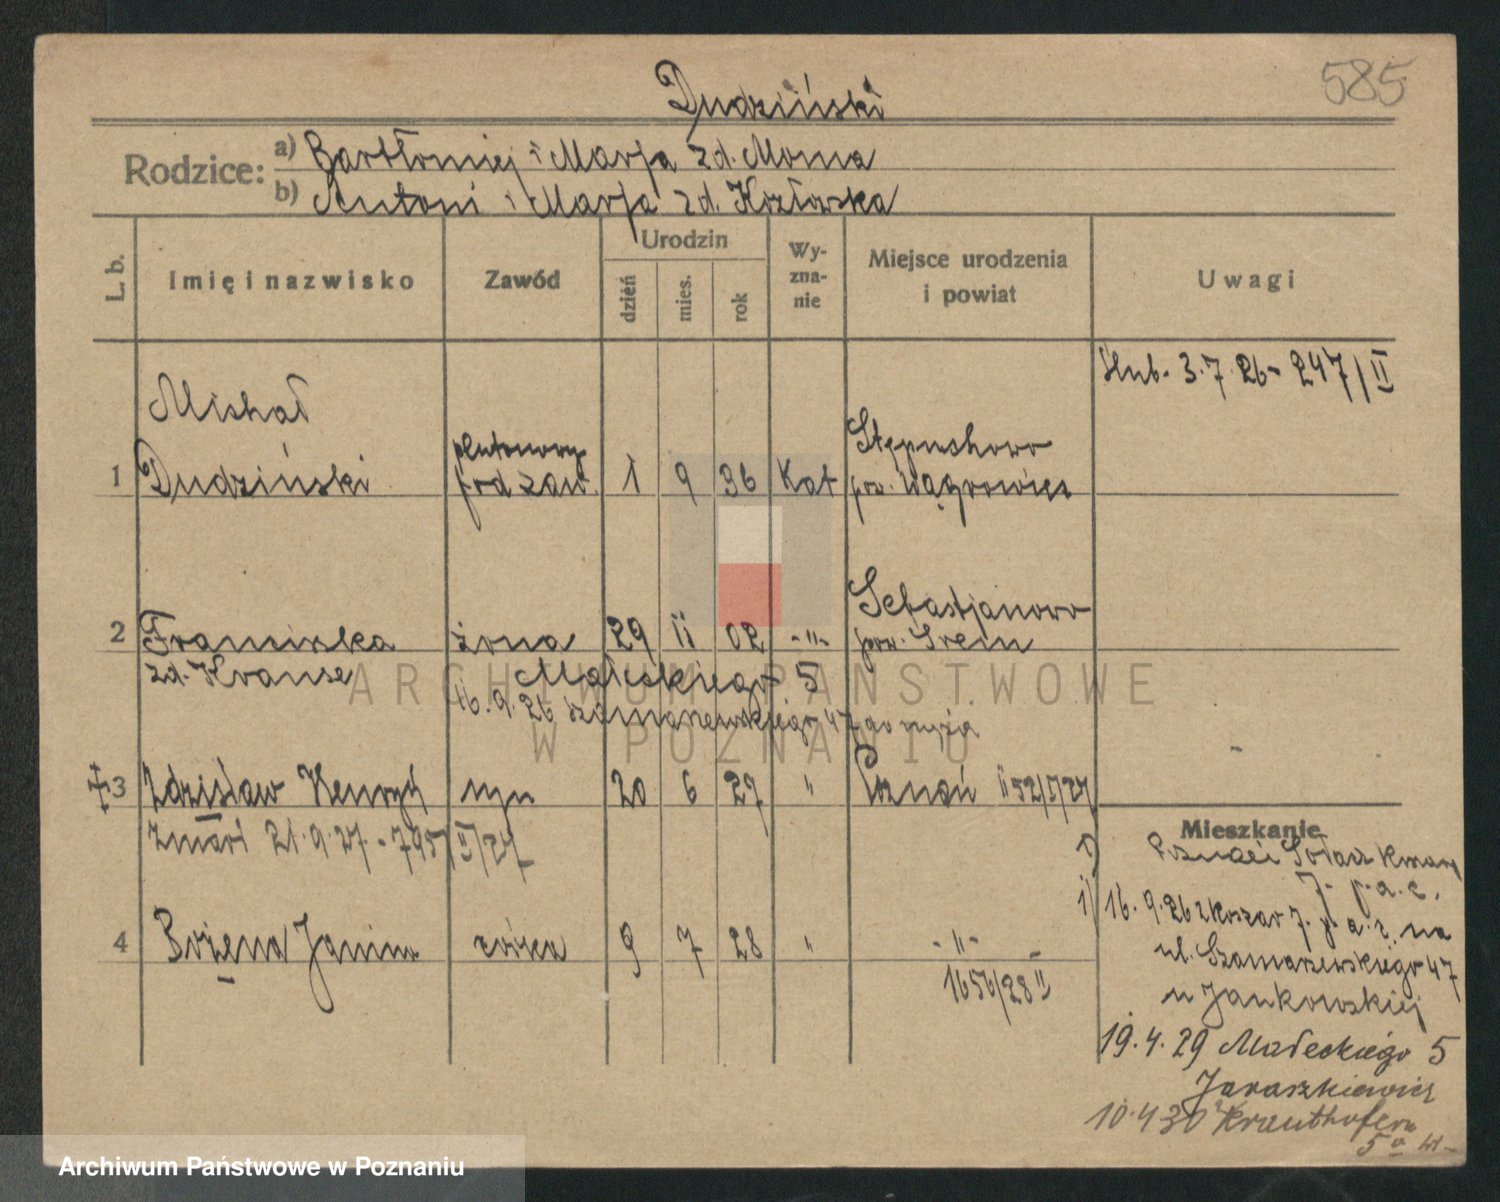 585
Dudziński
Rodzice: a) Bartłomiej i Marja zd. Moma
b) Antoni i Marja zd. Kozłowska
L. b.
Imię i nazwisko
Zawód
Urodzin
dzień
mies.
rok
Wy-
zna-
nie
Miejsce urodzenia
i powiat
Uwagi
ślub. 3.7.26 - 247/II
Michał
1 Dudziński
plutonowy
pod zaw.
1 9 96 Kat
Stępuchowo
pow. Wągrowiec
2 Franciszka
zd. Krause
żona 29 11 02 -"-
Sebastjanowo
pow. Śrem
Małeckiego 5
16.9.26 Szamarzewskiego 47
3 Zdzisław Henryk syn 20 6 27 " Poznań
zmarł 21.9.27 - 795/II/27
4 Bożena Janina córka 9 7 28 " -"-
1656/28 II
Mieszkanie
Poznań Sołacz
7. p.a.c.
1) 16.9.26 z koszar 7. p.a.c. na
ul. Szamarzewskiego 47
u Jankowskiej
19.4.29 Małeckiego 5
Jaraszkiewicz
10.4.30 Krauthofera
5a
ARCHIWUM PAŃSTWOWE
W POZNANIU
Archiwum Państwowe w Poznaniu